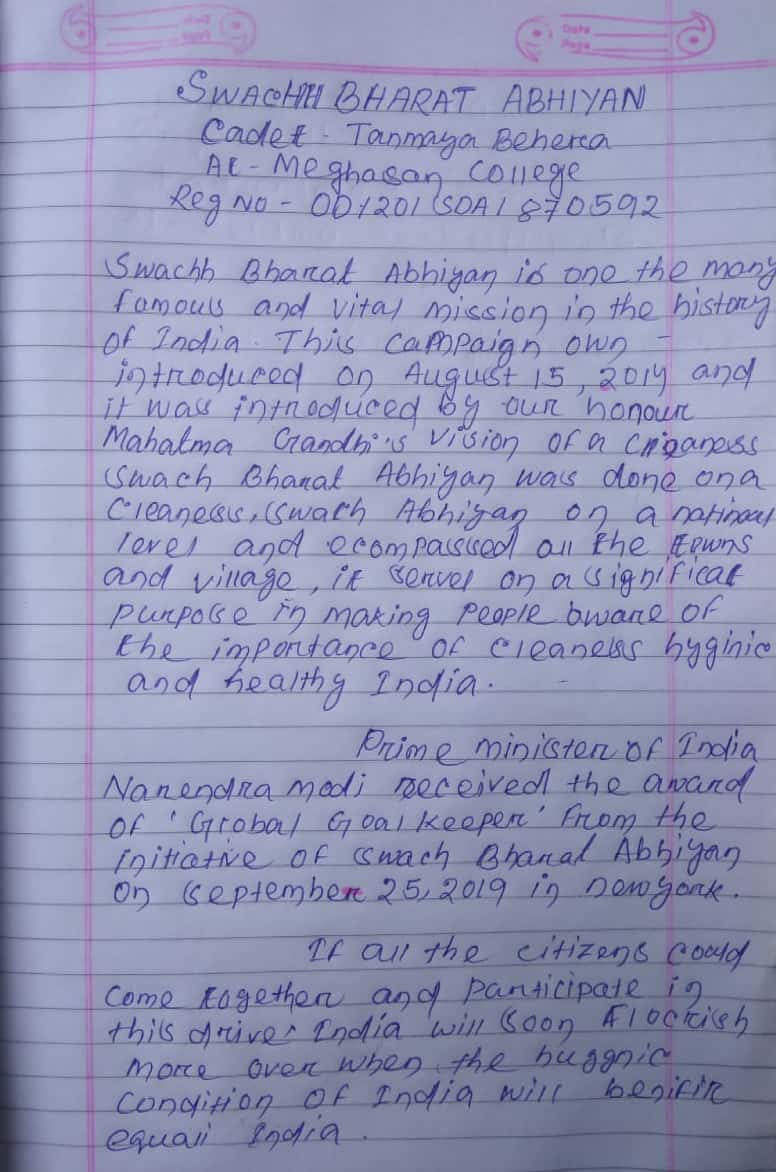 Date
Page
SWACHH BHARAT ABHIYAN
Cadet - Tanmaya Behera
At - Meghasan College
Reg No - OD1201SDA1870592
Swachh Bharat Abhiyan is one the many
famous and vital mission in the history
of India. This campaign own -
introduced on August 15, 2014 and
it was introduced by our honour
Mahatma Gandhi's vision of a
Swach Bharat Abhiyan was done on a
Cleaness, Swach Abhiyan on a
level and ecompassed all the towns
and village, it serves on a significat
purpose in making people aware of
the importance of cleaness hyginic
and healthy India.
Prime minister of India
Narendra modi received the award
of 'Grobal Goal keeper' from the
initiative of Swach Bharat Abhiyan
on September 25, 2019 in newyork.
If all the citizens could
come together and participate in
this drive. India will soon
more over when the
condition of India will
India.